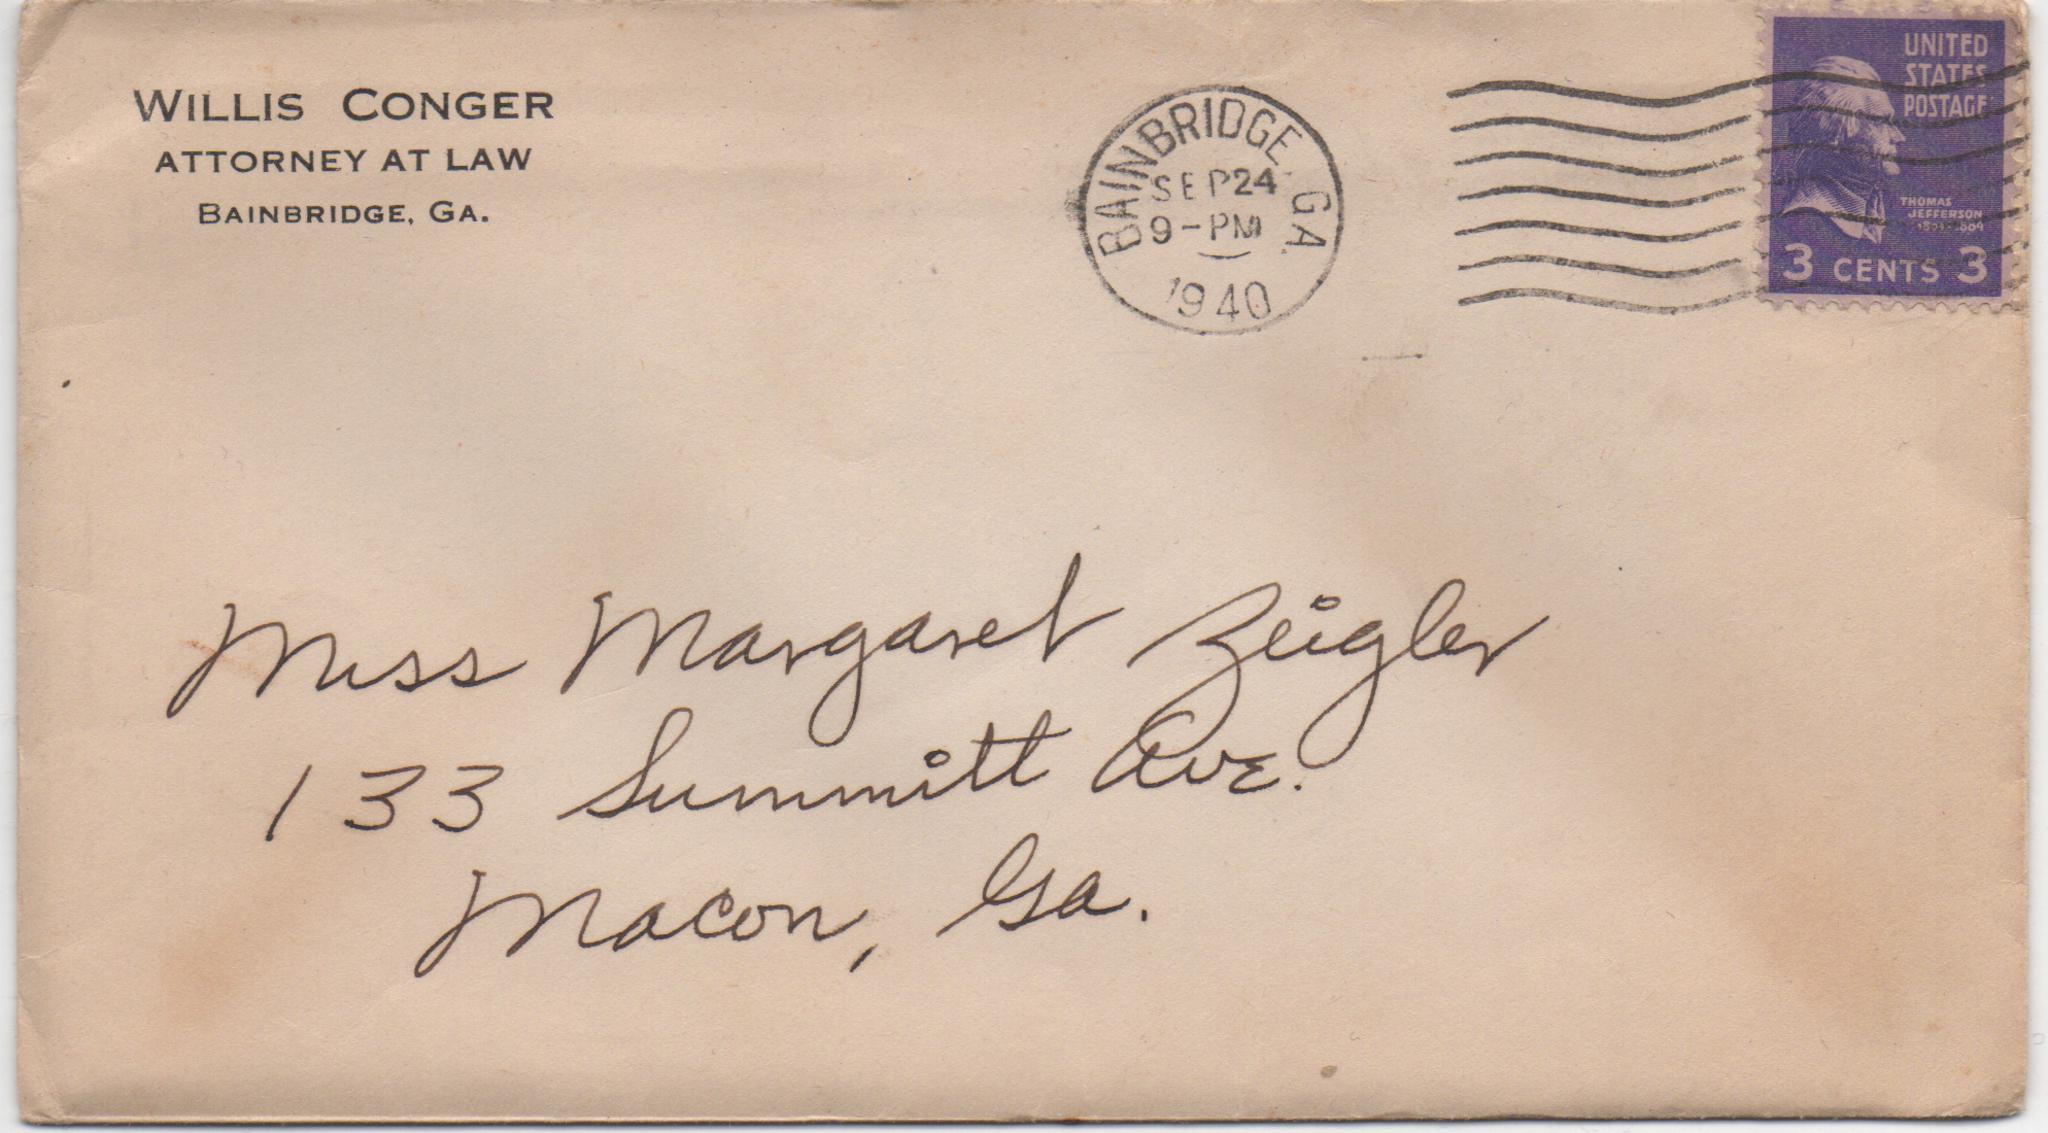 WILLIS CONGER
ATTORNEY AT LAW
BAINBRIDGE, GA.
BAINBRIDGE GA
SEP 24
9-PM
1940
UNITED
STATES
POSTAGE
THOMAS
JEFFERSON
3 CENTS 3
Miss Margaret Zeigler
133 Summitt Ave.
Macon, Ga.